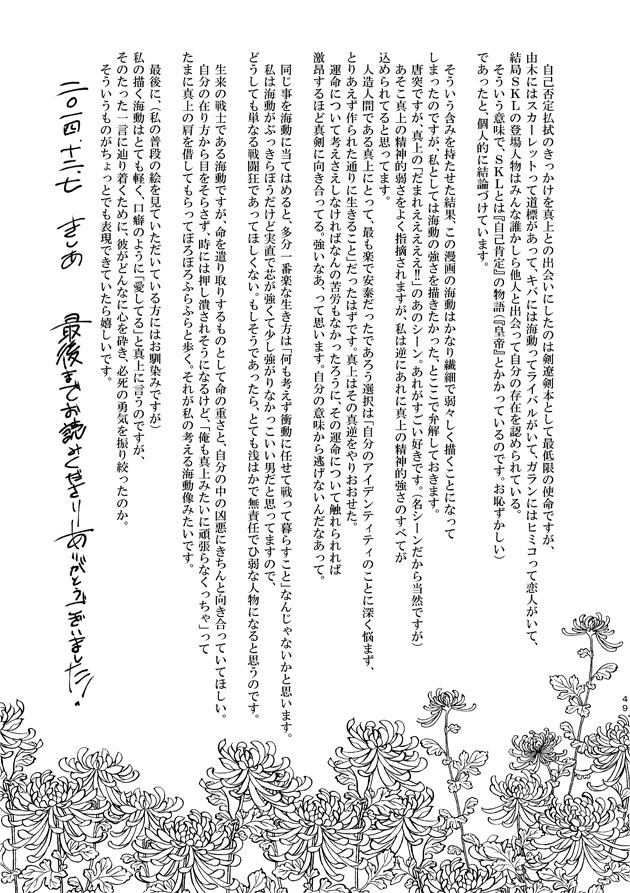 自己否定払拭のきっかけを真上との出会いにしたのは剣遼剣本として最低限の使命ですが、
由木にはスカーレットって道標があって、キバには海動ってライバルがいて、ガランにはヒミコって恋人がいて、
結局SKLの登場人物はみんな誰かしら他人と出会って自分の存在を認められている。
そういう意味で、SKLとは『自己肯定』の物語(『皇帝』とかかっているのです。お恥ずかしい)
であったと、個人的に結論づけています。
そういう含みを持たせた結果、この漫画の海動はかなり繊細で弱々しく描くことになって
しまったのですが、私としては海動の強さを描きたかった、とここで弁解しておきます。
唐突ですが、真上の「だまれええええええ!!」のあのシーン。あれがすごい好きです。(名シーンだから当然ですが)
あそこ真上の精神的弱さをよく指摘されますが、私は逆にあれに真上の精神的強さのすべてが
込められてると思ってます。
人造人間である真上にとって、最も楽で安泰だったであろう選択は「自分のアイデンティティのことに深く悩まず、
とりあえず作られた通りに生きること」だったはずです。真上はその真逆をやりおおせた。
運命について考えさえしなければなんの苦労もなかったろうに、その運命について触れられれば
激昂するほど真剣に向き合ってる。強いなあ、って思います。自分の意味から逃げないんだなあって。
同じ事を海動に当てはめると、多分一番楽な生き方は「何も考えず衝動に任せて戦って暮らすこと」なんじゃないかと思います。
私は海動がぶっきらぼうだけど実直で芯が強くて少し強がりなかっこいい男だと思ってますので、
どうしても単なる戦闘狂であってほしくない。もしそうであったら、とても浅はかで無責任でひ弱な人物になると思うのです。
生来の戦士である海動ですが、命を遣り取りするものとして命の重さと、自分の中の凶悪にきちんと向き合っていてほしい。
自分の在り方から目をそらさず、時には押し潰されそうになるけど、「俺も真上みたいに頑張らなくっちゃ」って
たまに真上の肩を借してもらってぼろぼろふらふらと歩く。それが私の考える海動像みたいです。
最後に、(私の普段の絵を見ていただいている方にはお馴染みですが)
私の描く海動はとても軽く、口癖のように「愛してる」と真上に言うのですが、
そのたった一言に辿り着くために、彼がどんなに心を砕き、必死の勇気を振り絞ったのか。
そういうものがちょっとでも表現できていたら嬉しいです。
二〇一四、十二、七 きしあ
最後までお読み下さりありがとうございました!
49